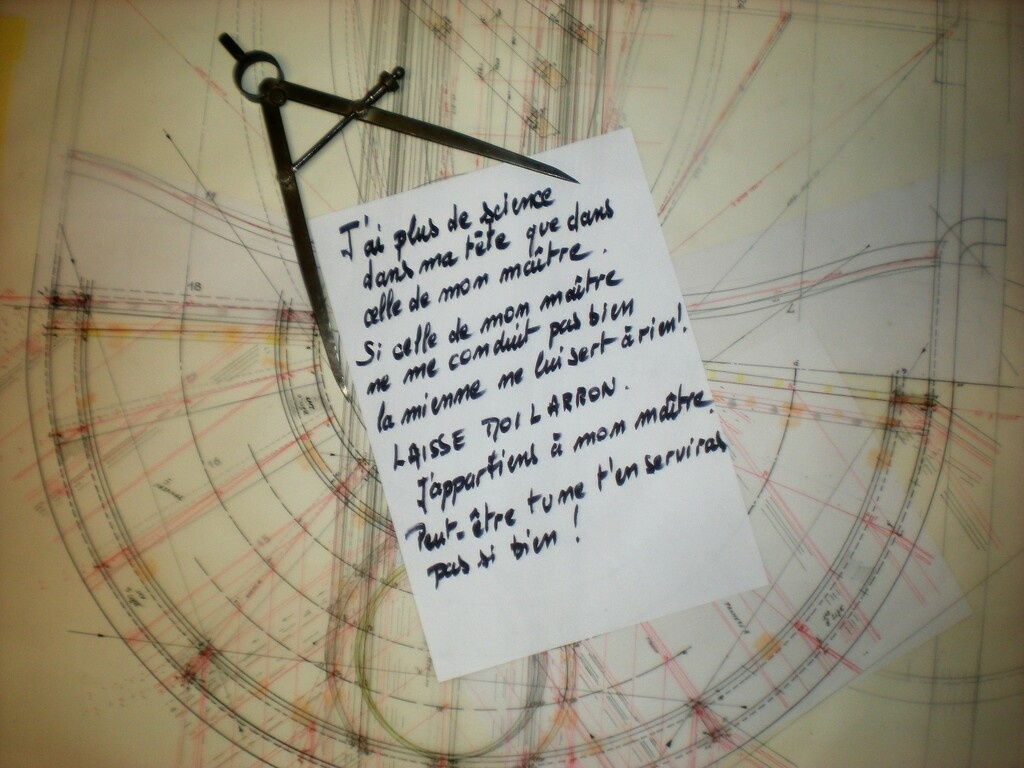 J'ai plus de science
dans ma tête que dans
celle de mon maître.
Si celle de mon maître
ne me conduit pas bien
la mienne ne lui sert à rien!
LAISSE MOI LARRON.
J'appartiens à mon maître.
Peut-être tu ne t'en serviras
pas si bien !
18
18